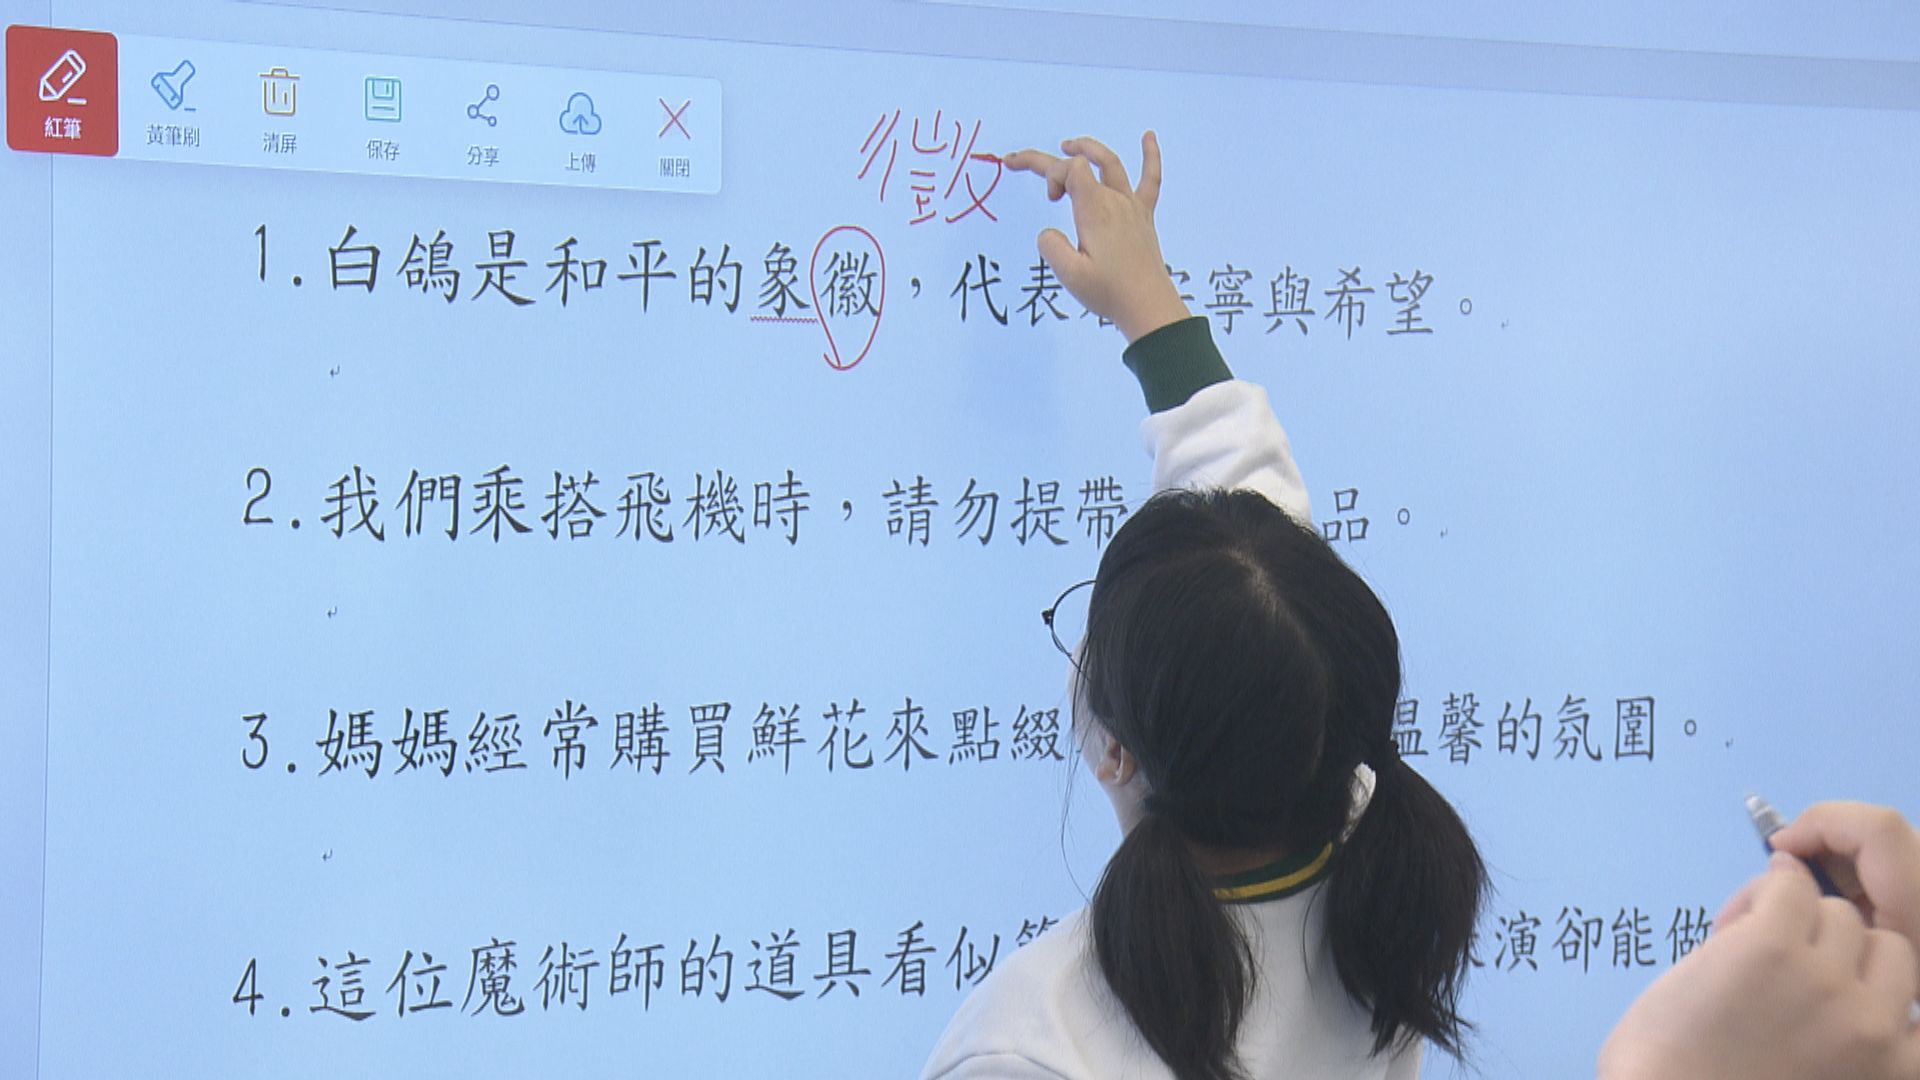 紅筆 黃筆刷 清屏 保存 分享 上傳 關閉
徵
1.白鴿是和平的象徽，代表 寧與希望。
2.我們乘搭飛機時，請勿提帶 品。
3.媽媽經常購買鮮花來點綴 溫馨的氛圍。
4.這位魔術師的道具看似 演卻能做